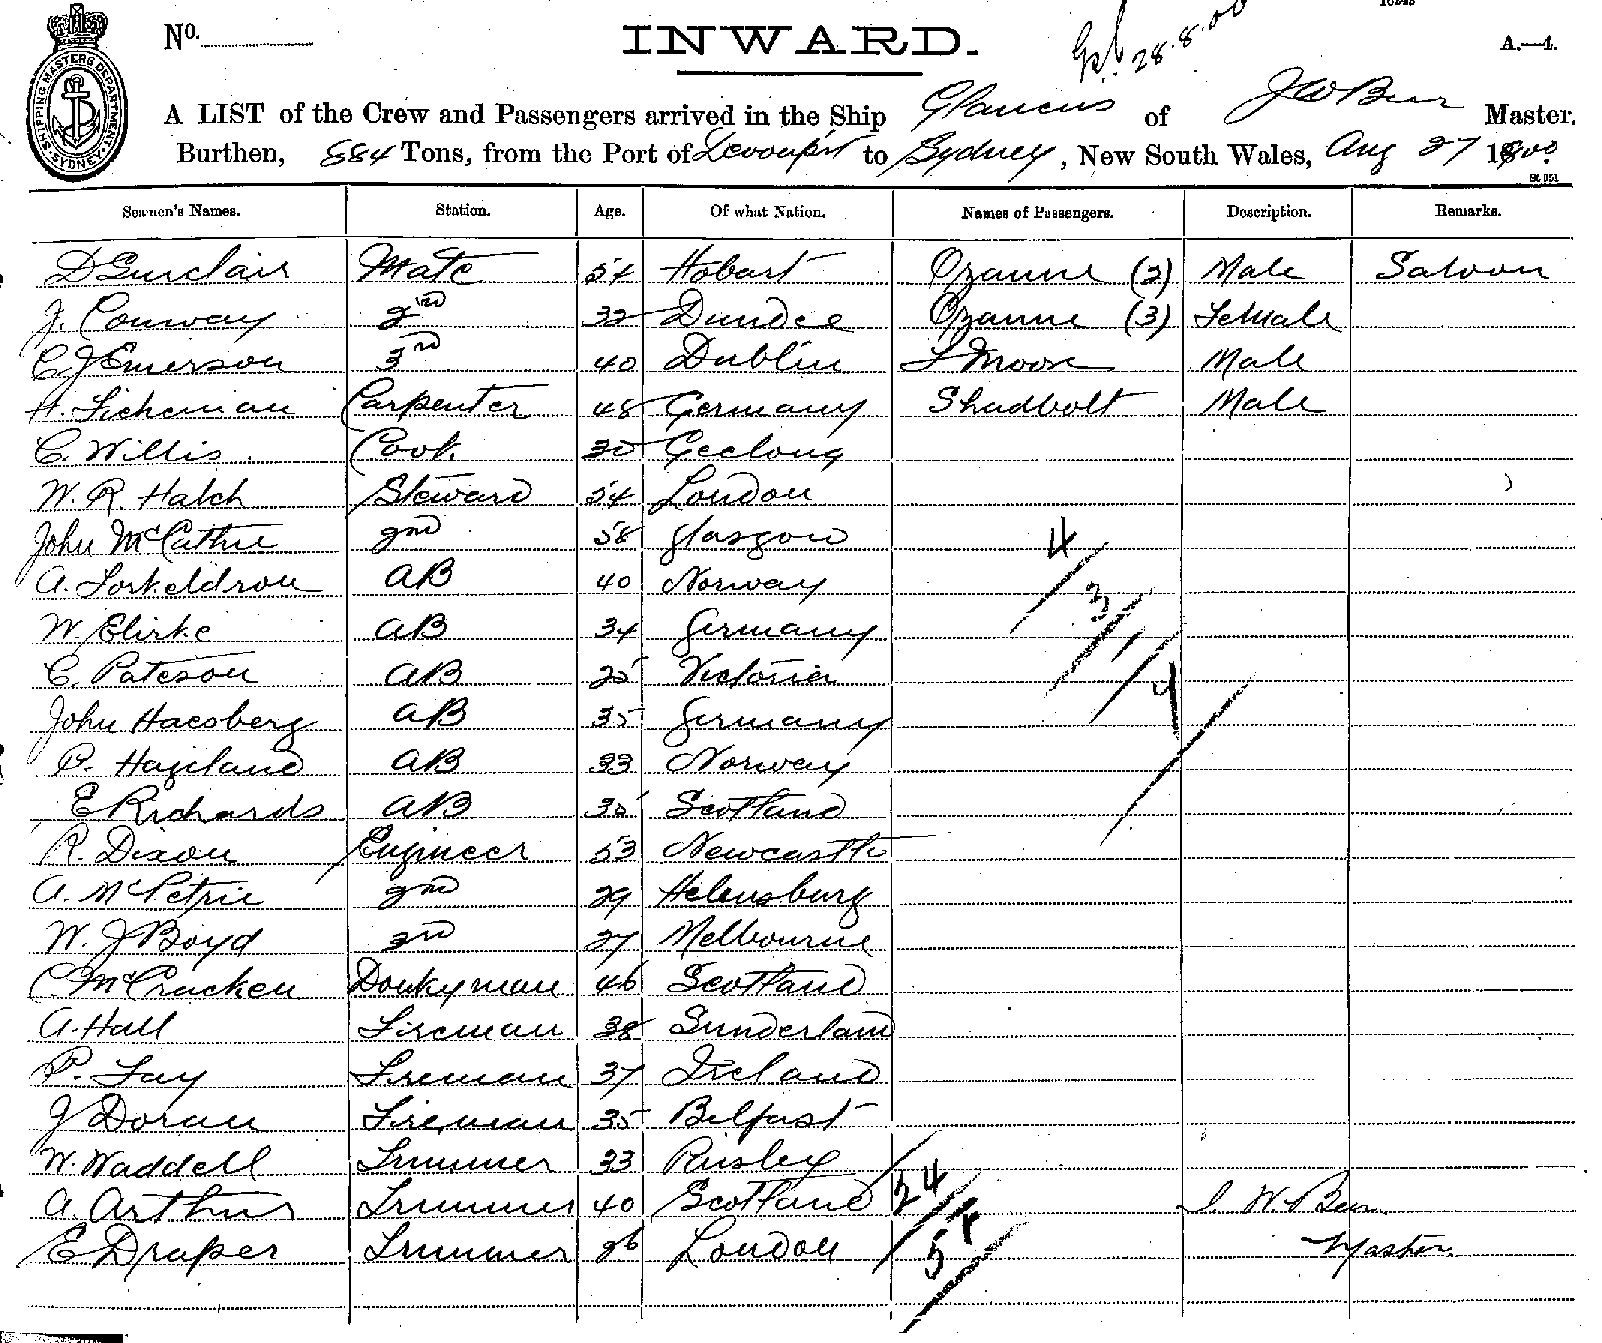 No.
INWARD.
28.8.00
A.—1.
SHIPPING MASTERS DEPARTMENT SYDNEY
A LIST of the Crew and Passengers arrived in the Ship Glaucus of J W Beer Master.
Burthen, 884 Tons, from the Port of Devonport to Sydney, New South Wales, Aug 27 1900
Seamen's Names. Station. Age. Of what Nation. Names of Passengers. Description. Remarks.
D Sinclair Mate 54 Hobart Ozanne (2) Male Saloon
J. Conway 2nd 32 Dundee Ozanne (3) Female
C J Emerson 3rd 40 Dublin Moore Male
H. Carpenter 48 Germany Shadbolt Male
C. Willis Cook 30 Geelong
W. R. Hatch Steward 54 London
John McCathie 2nd 58 Glasgow
A. Torkeldson AB 40 Norway
W. AB 34 Germany
C. Pateson AB 25 Victoria
John Hacsberg AB 35 Germany
P. Hagland AB 33 Norway
E Richards AB 35 Scotland
R. Dixon Engineer 53 Newcastle
A. McPetrie 2nd 29 Helensburg
W. J Boyd 3rd 27 Melbourne
C. McCracken Donkyman 46 Scotland
A. Hall Fireman 38 Sunderland
P. Fay Fireman 37 Ireland
J Doran Fireman 35 Belfast
W. Waddell Trimmer 33
A. Arthur Trimmer 40 Scotland
E Draper Trimmer 26 London
4/
3/
1/
4/
24/
5
J. W. Beer
Master